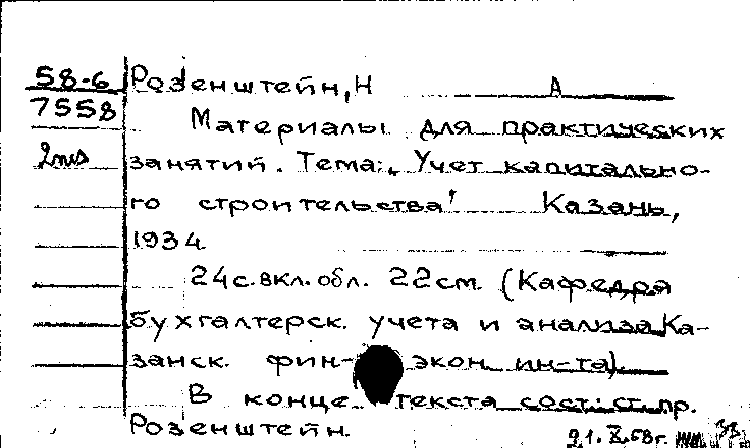 58-6 Розенштейн, Н А
7558
Материалы для практических
занятий. Тема: „Учет капитально-
го строительства" Казань,
1934
24с.вкл.обл. 22см. (Кафедра
бухгалтерск. учета и анализа Ка-
занск. фин-экон. ин-та).
В конце текста сост: ст.пр.
Розенштейн.
21.X.58г.